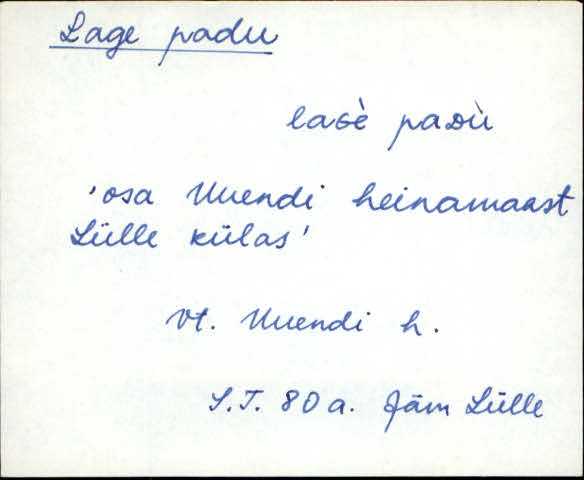 Lage padu
laGè paDù
'osa Uuendi heinamaast
Lülle külas'
Vt. Uuendi h.
S.T. 80 a. Jäm Lülle